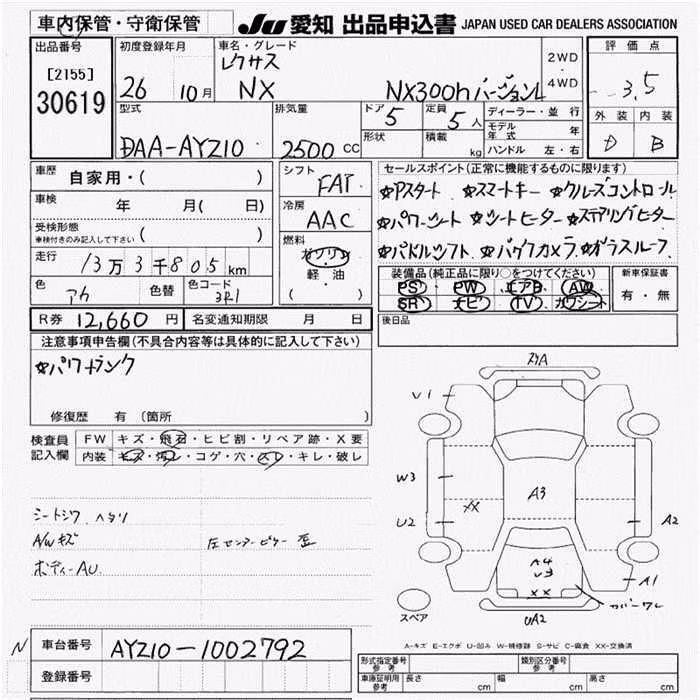 車内保管・守衛保管
JU 愛知 出品申込書 JAPAN USED CAR DEALERS ASSOCIATION
出品番号
[2155]
30619
初度登録年月
26 10月
車名・グレード
レクサス
NX NX300h バージョンL
2WD
・
4WD
評価点
3.5
外装 内装
D B
型式
DAA-AYZ10
排気量
2500 CC
ドア 5
形状
定員 5人
積載 kg
ディーラー・並行
モデル年式 年
ハンドル 左・右
車歴 自家用・( )
車検 年 月( 日)
受検形態
車検付きのみ記入して下さい ( )
走行 13万3千805km
色 アカ 色替 色コード 3R1
シフト
FAT
冷房
AAC
燃料
ガソリン
軽・油
( )
セールスポイント(正常に機能するものに限ります)
☆Pスタート ☆スマートキー ☆クルーズコントロール
☆パワーシート ☆シートヒーター ☆ステアリングヒーター
☆パドルシフト ☆バックカメラ ☆ガラスルーフ
装備品(純正品に限り○をつけてください)
PS PW エアB AW
SR ナビ TV カワシート
新車保証書
有・無
R券 12,660円 名変通知期限 月 日
後日品
注意事項申告欄(不具合内容等は具体的に記入して下さい)
☆パワートランク
修復歴 有(箇所 )
検査員記入欄
FW キズ・飛石・ヒビ割・リペア跡・X要
内装 キズ・汚レ・コゲ・穴・スレ・キレ・破レ
シートシワ ヘタリ
A/Wキズ 左センターピラー歪
ボディーAU
V1
W3
U2
XX
A3
A2
A4
U3
XX
A1
カバーワレ
UA2
スペア
A-キズ E-エクボ U-凹み W-補修跡 S-サビ C-腐食 XX-交換済
N
車台番号 AYZ10-1002792
登録番号
形式指定番号 参考
類別区分番号 参考
車庫証明用 参考 長さ cm 幅 cm 高さ cm